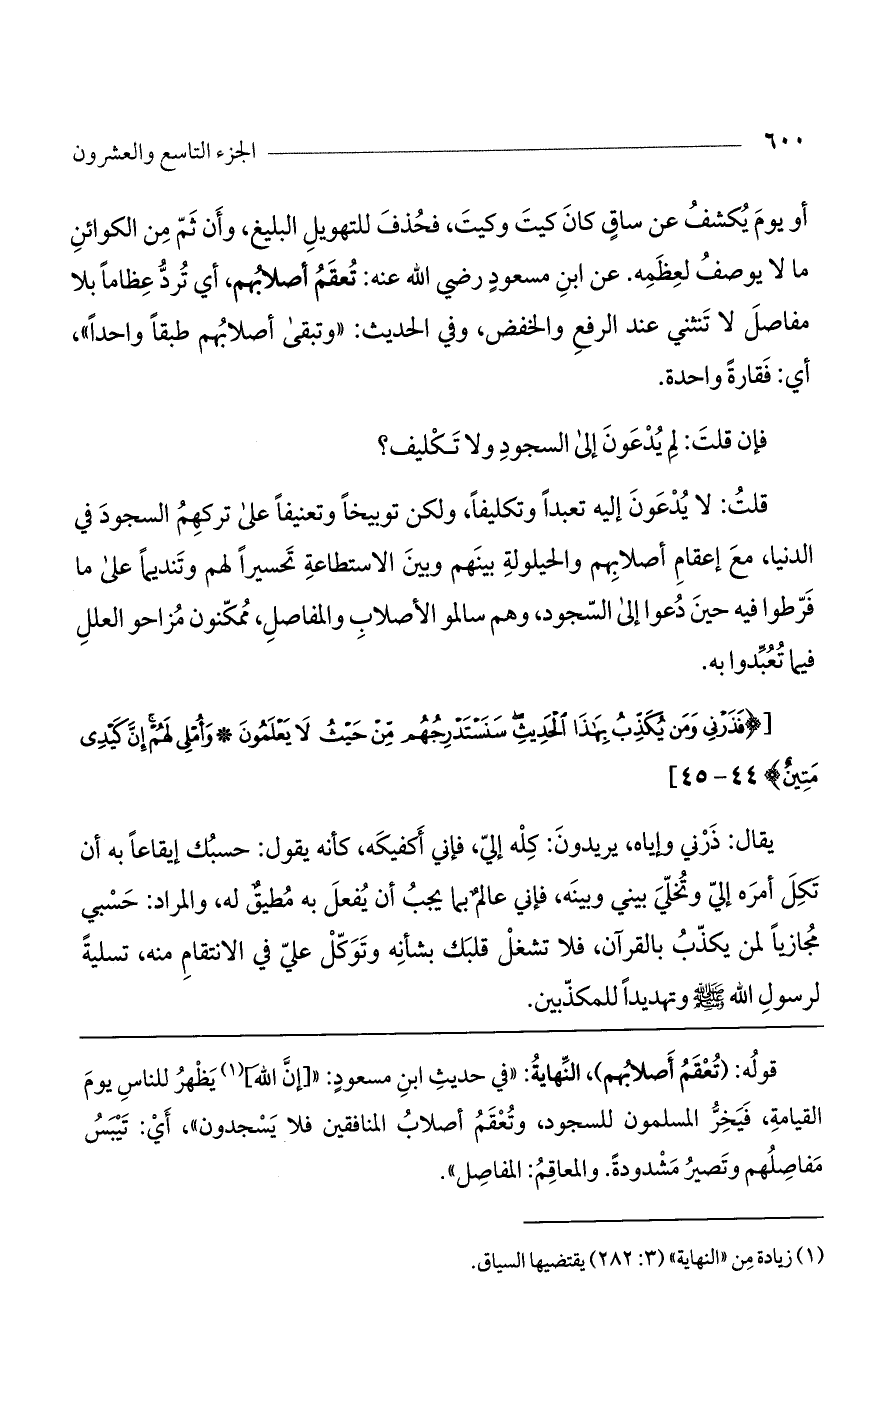 ٦٠٠ الجزء التاسع والعشرون
أو يومَ يُكشفُ عن ساقٍ كانَ كيتَ وكيتَ، فحُذفَ للتهويلِ البليغ، وأَن ثَمّ مِن الكوائنِ
ما لا يوصفُ لعِظَمِه. عن ابنِ مسعودٍ رضي الله عنه: تُعقَمُ أصلابُهم، أي تُردُّ عِظاماً بلا
مفاصلَ لا تَنثني عند الرفعِ والخفض، وفي الحديث: «وتبقىٰ أصلابُهم طبقاً واحداً»،
أي: فَقارةً واحدة.
فإن قلتَ: لِم يُدْعَونَ إلىٰ السجودِ ولا تَكْليف؟
قلتُ: لا يُدْعَونَ إليه تعبداً وتكليفاً، ولكن توبيخاً وتعنيفاً علىٰ تركهِمُ السجودَ في
الدنيا، معَ إعقامِ أصلابِهم والحيلولةِ بينَهم وبينَ الاستطاعةِ تَحسيراً لهم وتَنديماً علىٰ ما
فَرّطوا فيه حينَ دُعوا إلىٰ السّجود، وهم سالمو الأصلابِ والمفاصلِ، مُمكّنون مُزاحو العللِ
فيما تُعُبِّدوا به.
[﴿فَذَرْنِي وَمَن يُكَذِّبُ بِهَٰذَا ٱلْحَدِيثِ ۖ سَنَسْتَدْرِجُهُم مِّنْ حَيْثُ لَا يَعْلَمُونَ * وَأُمْلِي لَهُمْ ۚ إِنَّ كَيْدِي
مَتِينٌ﴾ ٤٤ – ٤٥]
يقال: ذَرْني وإياه، يريدونَ: كِلْه إليّ، فإني أَكفيكَه، كأنه يقول: حسبُك إيقاعاً به أن
تَكِلَ أمرَه إليّ وتُخلّيَ بيني وبينَه، فإني عالمٌ بما يجبُ أن يُفعلَ به مُطيقٌ له، والمراد: حَسْبي
مُجازياً لمن يكذّبُ بالقرآن، فلا تشغلْ قلبَك بشأنِه وتَوَكّلْ عليّ في الانتقامِ منه، تسليةً
لرسولِ الله ﷺ وتهديداً للمكذّبين.
قولُه: (تُعْقَمُ أَصلابُهم)، النِّهايةُ: «في حديثِ ابنِ مسعودٍ: «[إنَّ الله](١) يَظْهرُ للناسِ يومَ
القيامةِ، فَيَخِرُّ المسلمون للسجود، وتُعْقَمُ أصلابُ المنافقين فلا يَسْجدون»، أَيْ: تَيْبَسُ
مَفاصِلُهم وتَصيرُ مَشْدودةً. والمعاقِمُ: المفاصِل».
(١) زيادة مِن «النهاية» (٣: ٢٨٢) يقتضيها السياق.